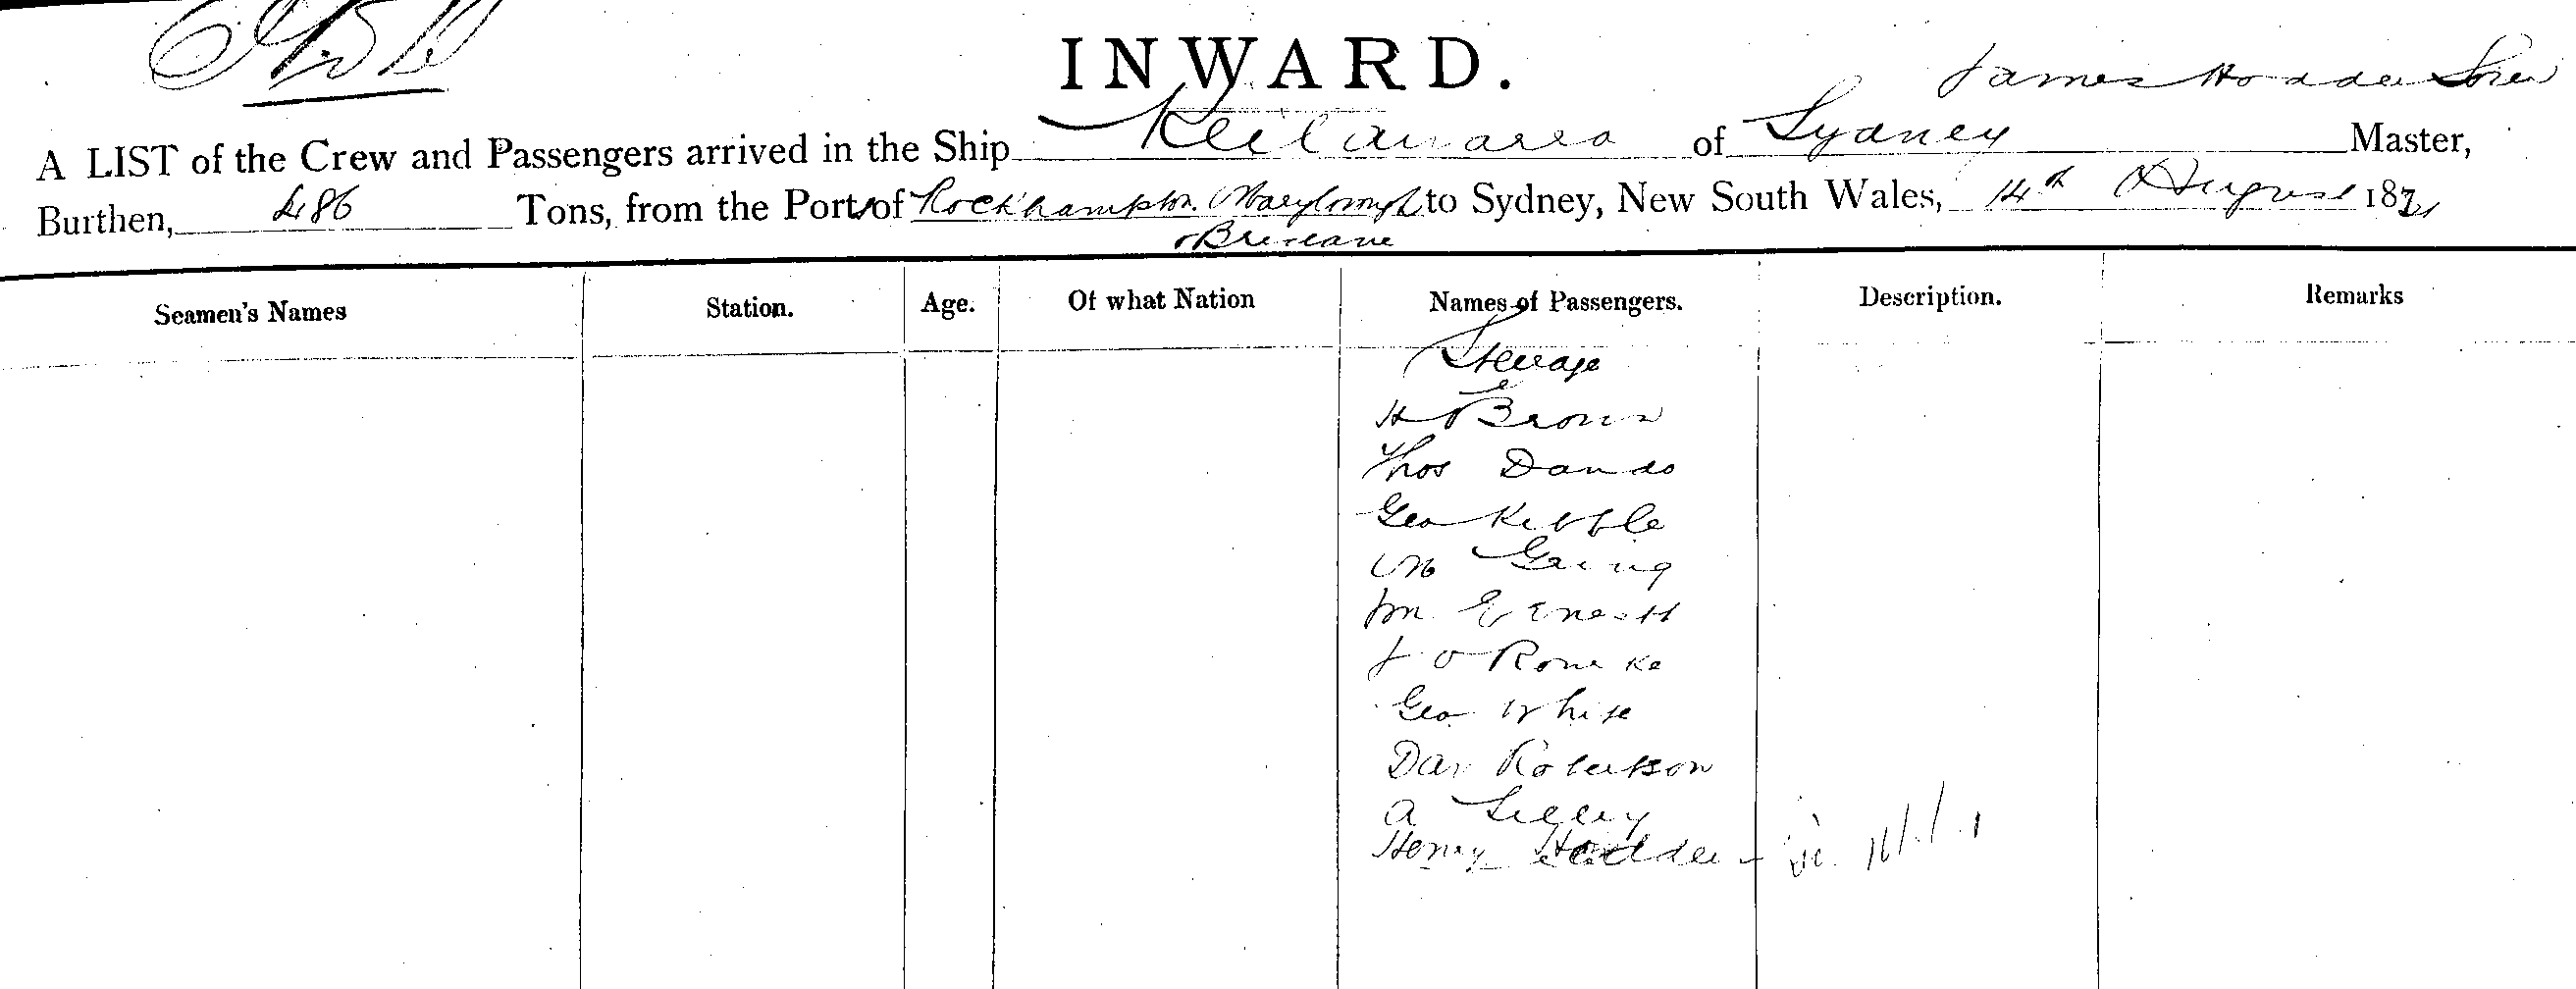 INWARD.
James Hodder
A LIST of the Crew and Passengers arrived in the Ship Keilawarra of Sydney Master,
Burthen, 486 Tons, from the Ports of Rockhampton. Maryborough to Sydney, New South Wales, 14th August 187
& Brisbane
Seamen's Names Station. Age. Of what Nation Names of Passengers. Description. Remarks
Steerage
H Brown
Thos Dando
Geo Kebble
Wm Ernestt
J O Rourke
Geo White
Dav Robertson
A Lilley
Henry Hodder